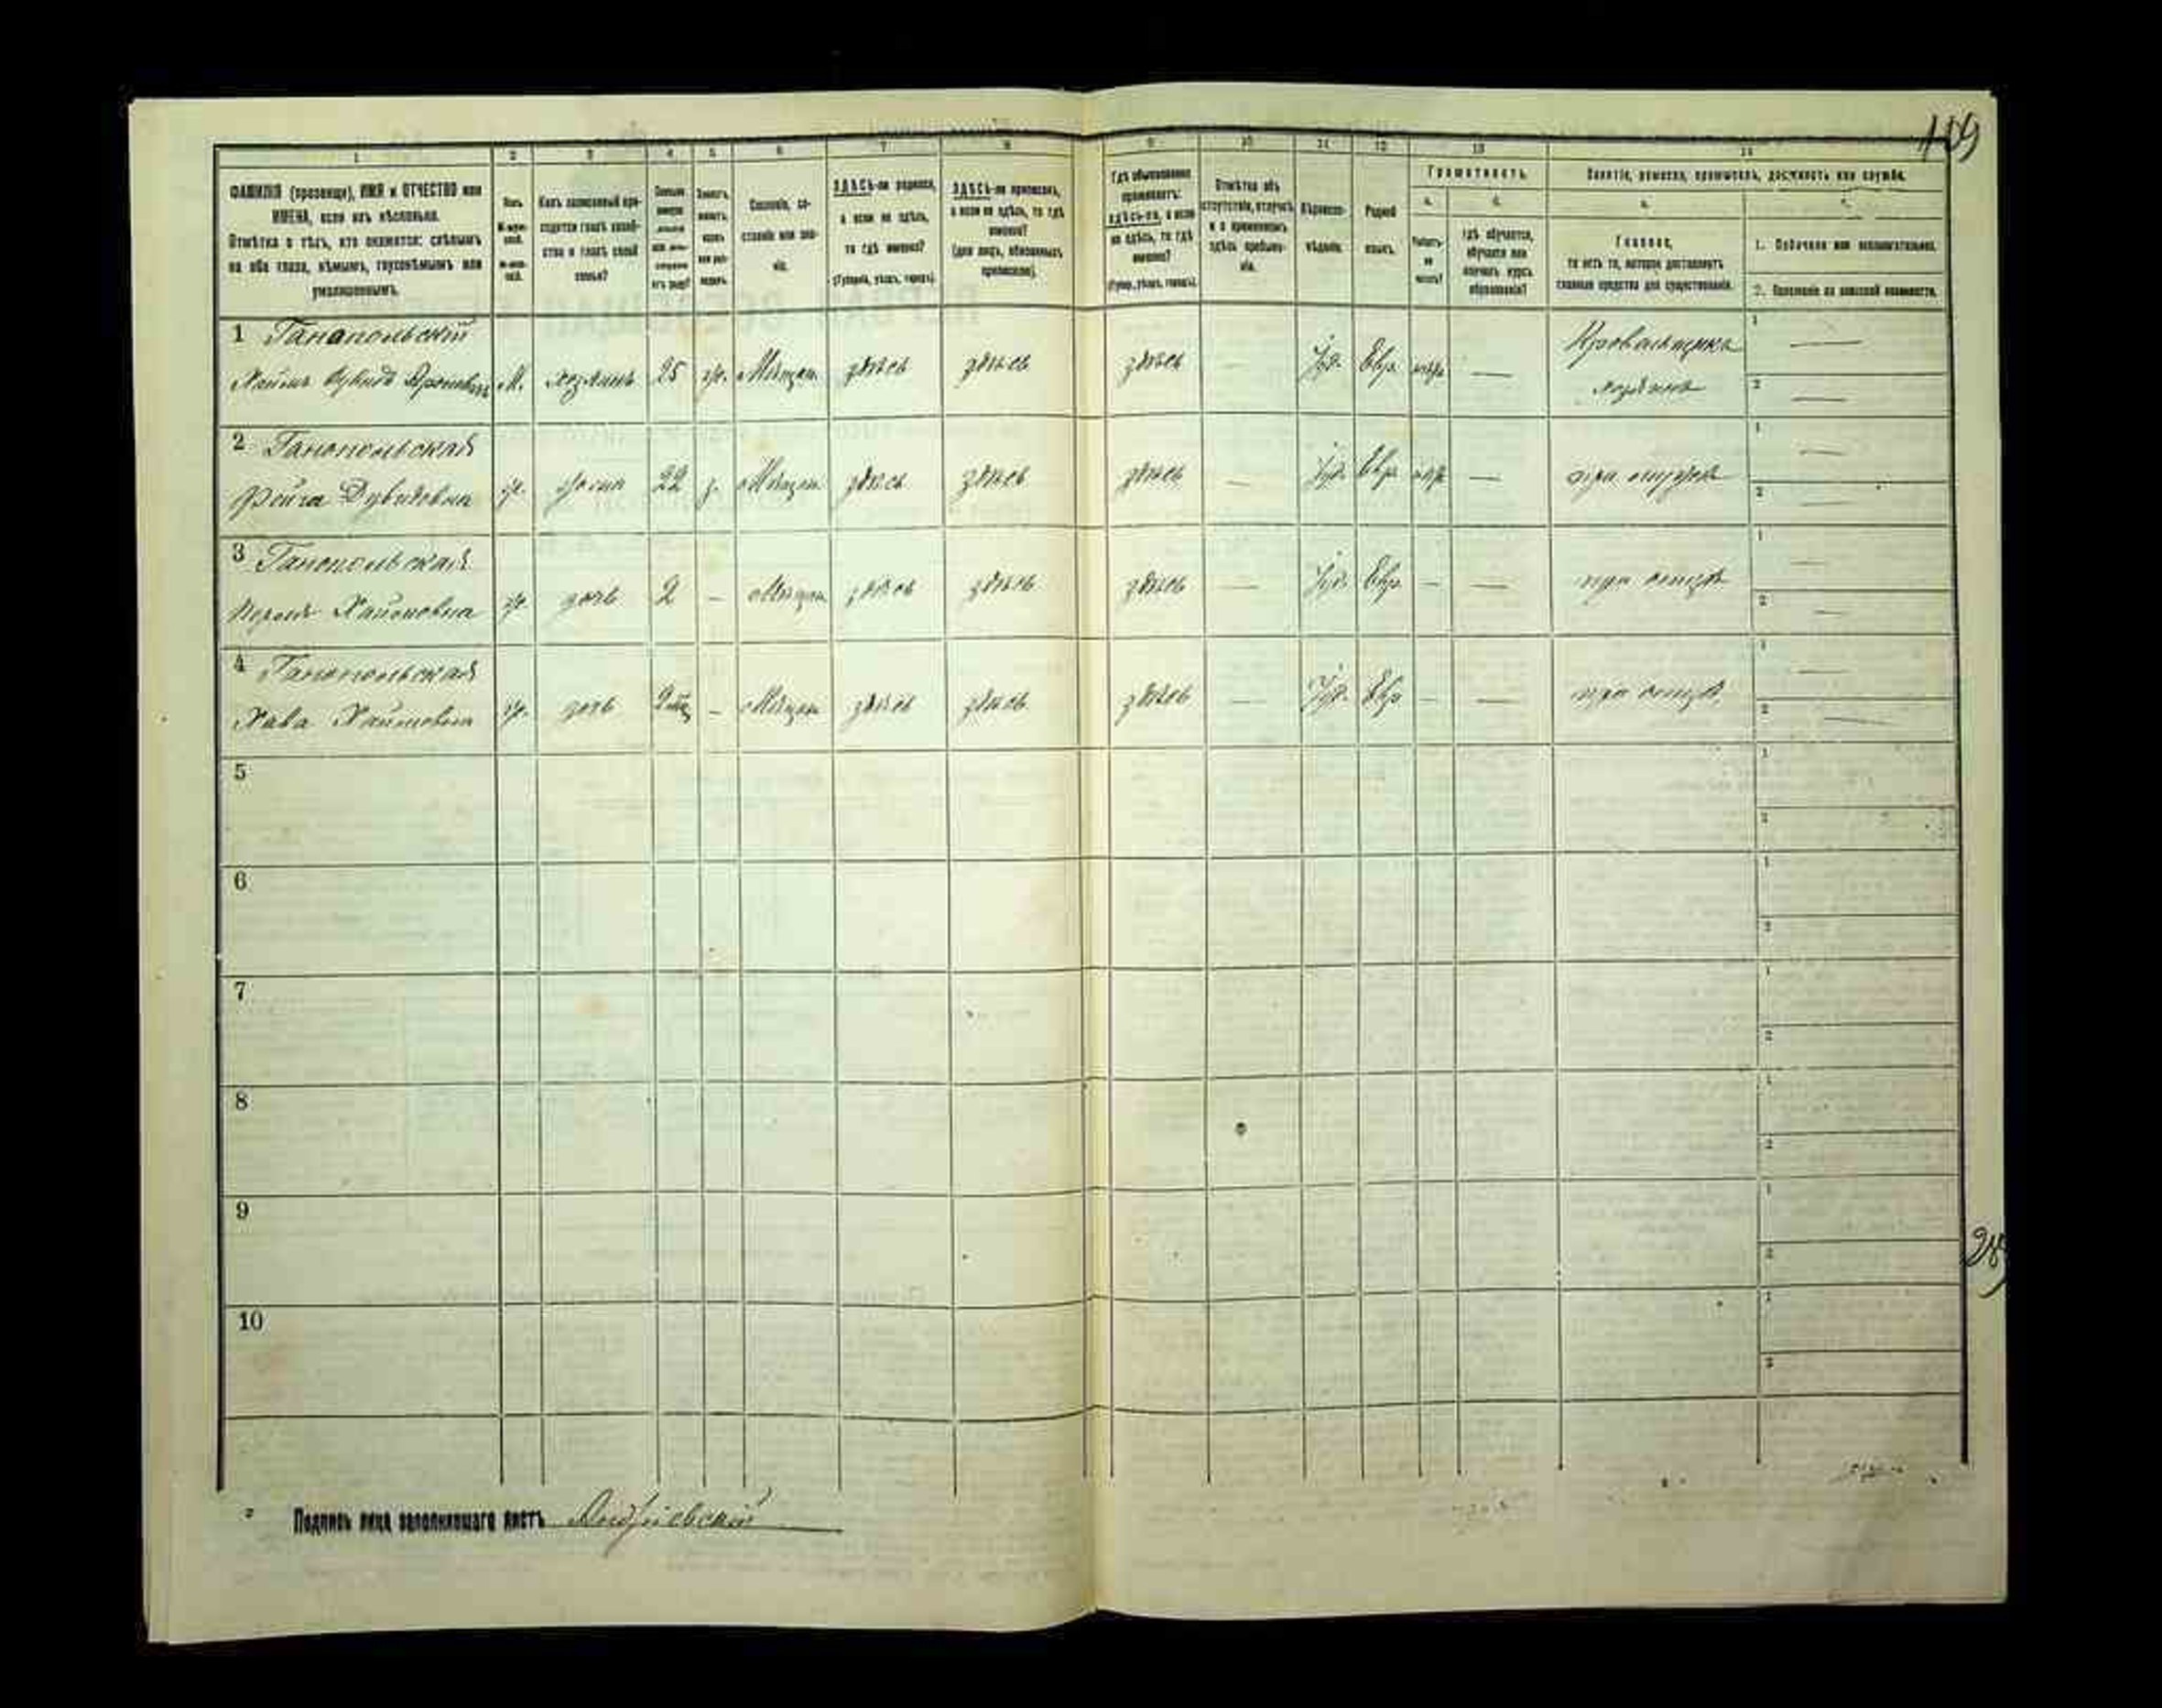 109
1 2 3 4 5 6 7 8 9 10 11 12 13 14
ФАМИЛІЯ (прозвище), ИМЯ и ОТЧЕСТВО или
ИМЕНА, если ихъ нѣсколько.
Отмѣтка о тѣхъ, кто окажется: слѣпымъ
на оба глаза, нѣмымъ, глухонѣмымъ или
умалишеннымъ.
Какъ записанный при-
ходится главѣ хозяй-
ства и главѣ своей
семьи?
Сословіе, со-
стояніе или зва-
ніе.
ЗДѢСЬ-ли родился,
а если не здѣсь,
то гдѣ именно?
(Губернія, уѣздъ, городъ).
ЗДѢСЬ-ли приписанъ,
а если не здѣсь, то гдѣ
именно?
(для лицъ, обязанныхъ
припискою).
Гдѣ обыкновенно
проживаетъ:
здѣсь-ли, а если
не здѣсь, то гдѣ
именно?
(Губер., уѣздъ, городъ).
Отмѣтка объ
отсутствіи, отлучкѣ
и о временномъ
здѣсь пребыва-
ніи.
Вѣроиспо-
вѣданіе.
Родной
языкъ.
Грамотность.
а. б.
Умѣетъ-
ли
читать?
гдѣ обучается,
обучался или
кончилъ курсъ
образованія?
Занятіе, ремесло, промыселъ, должность или служба.
Главное,
то есть то, которое доставляетъ
главныя средства для существованія.
1. Побочное или вспомогательное.
2. Положеніе по воинской повинности.
1 Ганапольскій
Хаимъ Дувидъ Ароновичъ М. хозяинъ 25 ж. Мѣщан. здѣсь здѣсь здѣсь Іуд. Евр. —
Кровельщикъ
хозяинъ
1 —
2 —
2 Ганапольская
Фейга Дувидовна ж. жена 22 з. Мѣщан. здѣсь здѣсь здѣсь — Іуд. Евр. — при мужѣ
1 —
2 —
3 Ганапольская
Хаимовна ж. дочь 2 — Мѣщан. здѣсь здѣсь здѣсь — Іуд. Евр. — — при отцѣ
1 —
2 —
4 Ганапольская
Хава Хаимовна ж. дочь — Мѣщан. здѣсь здѣсь здѣсь — Іуд. Евр. — — при отцѣ
1 —
2 —
5
1
2
6
1
2
7
1
2
8
1
2
9
1
2
10
1
2
Подпись лица заполнившаго листъ Андріевскій